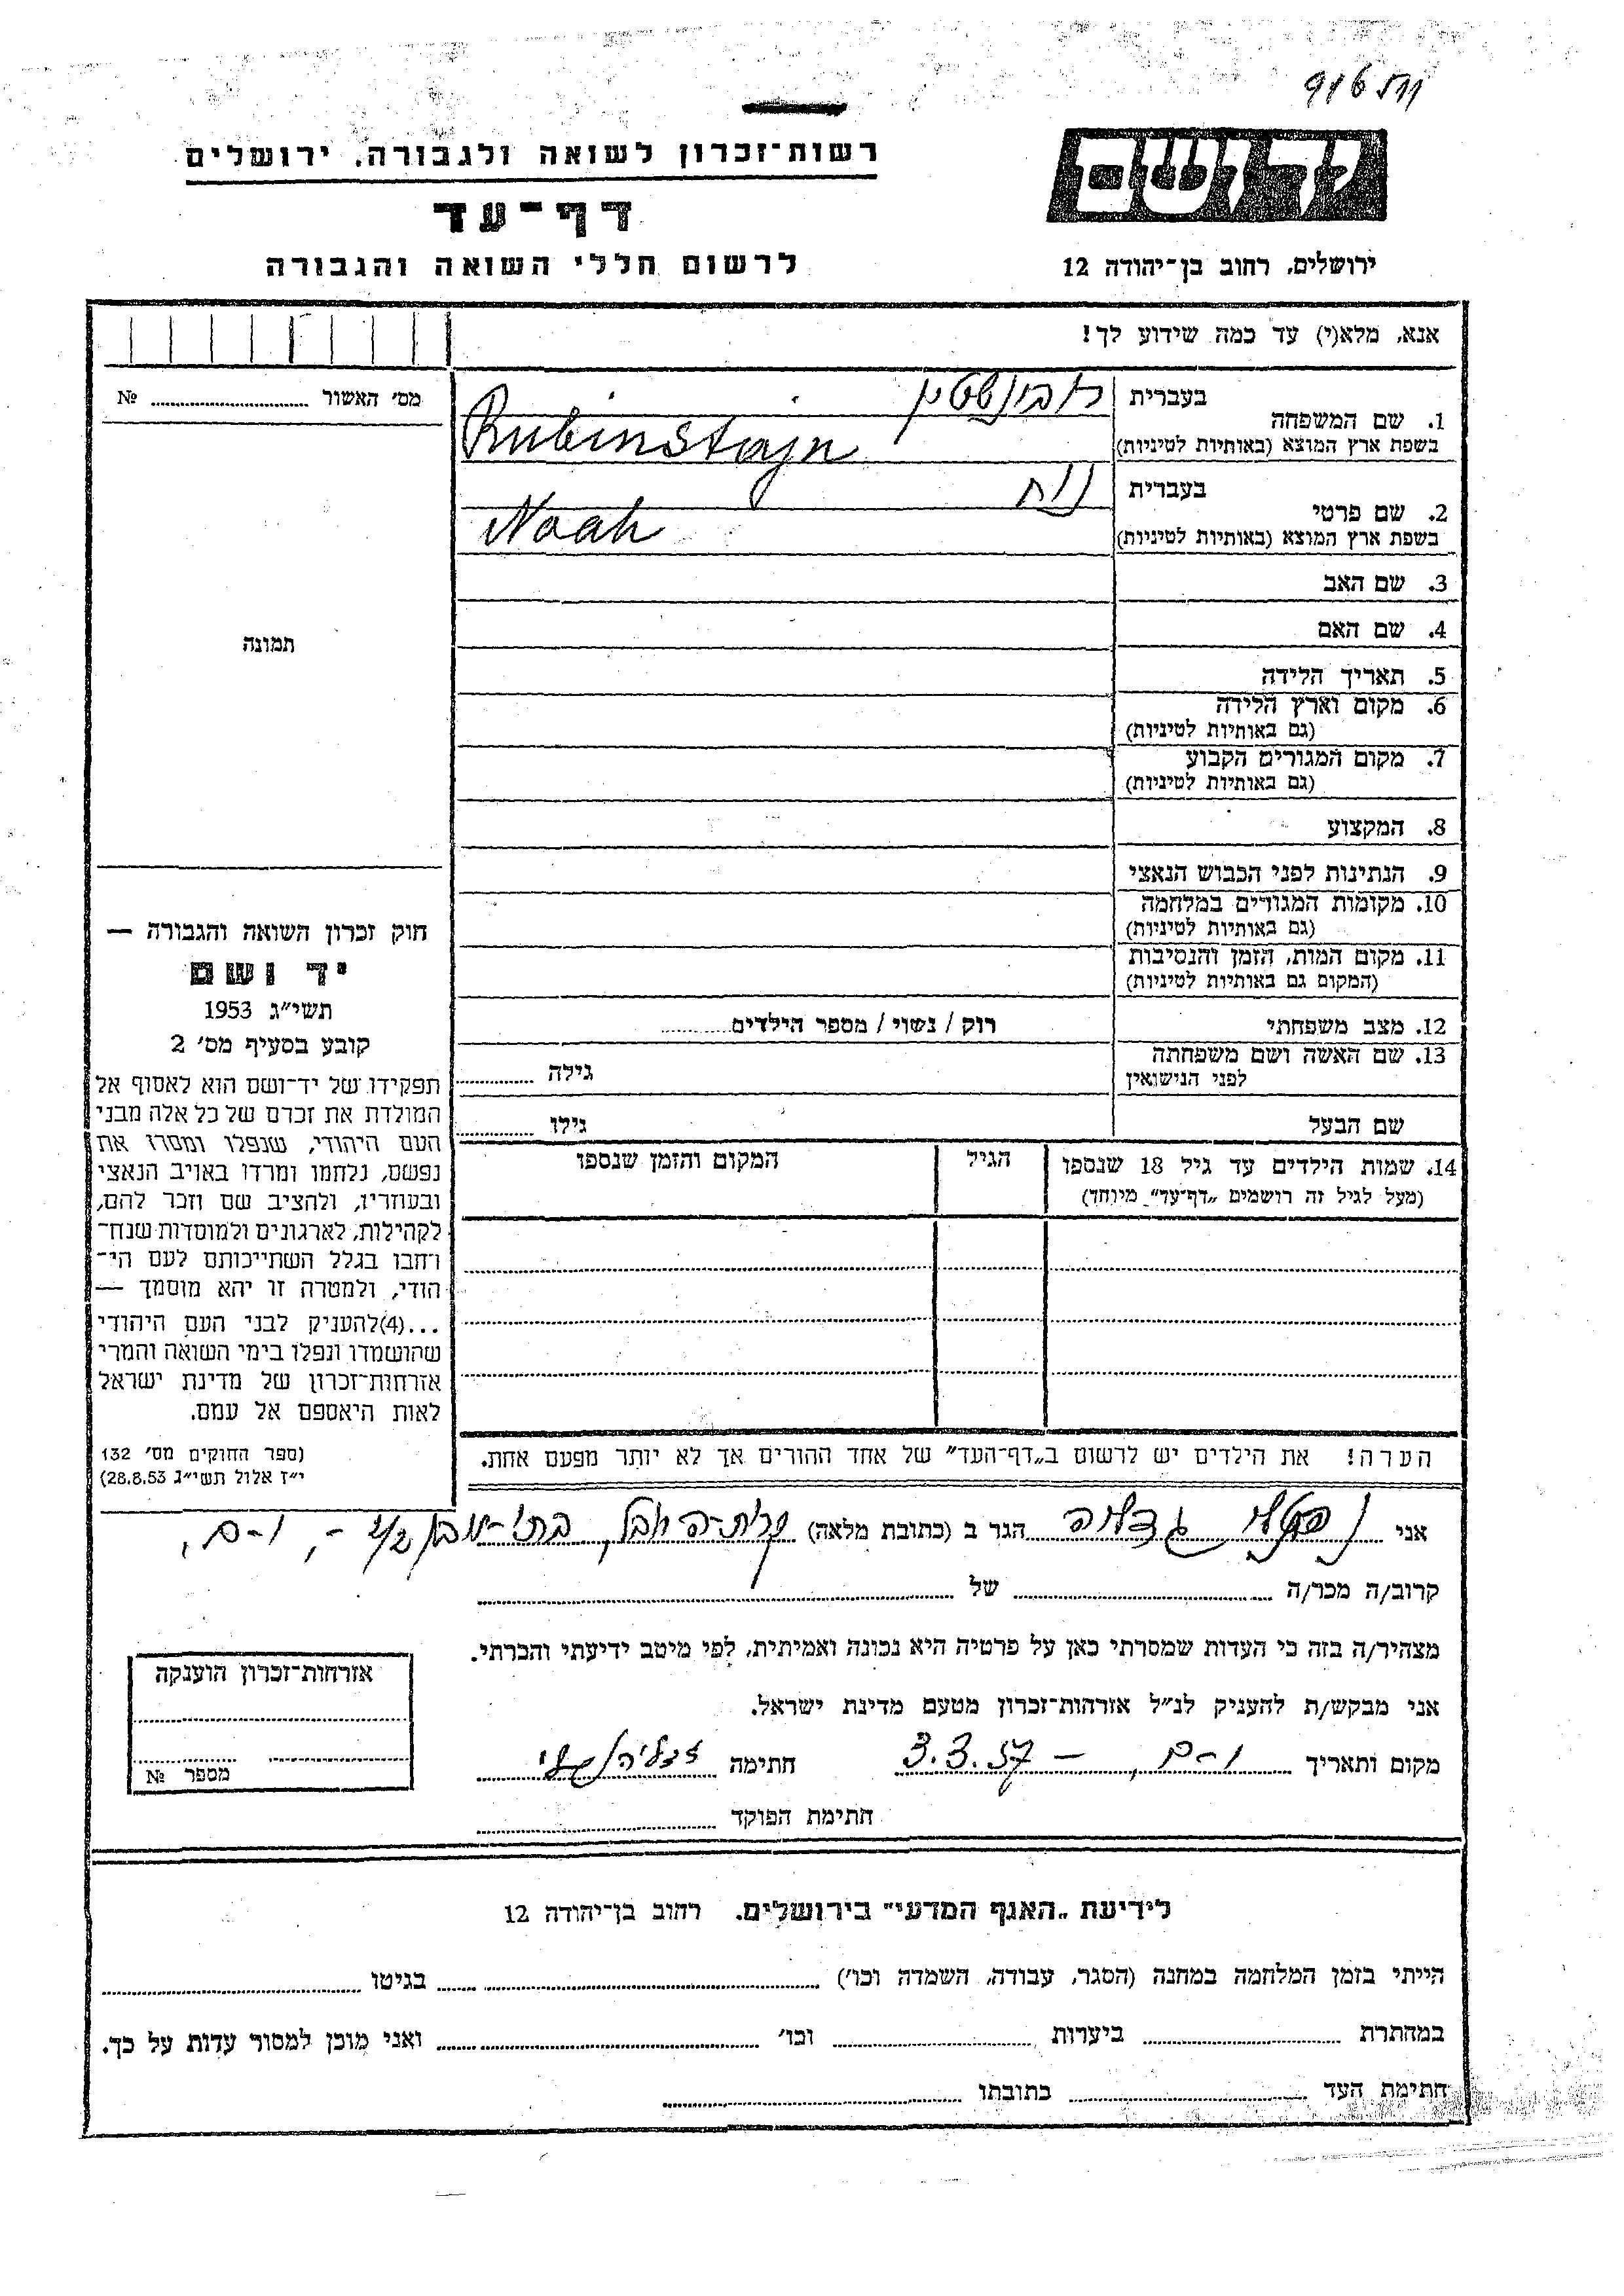 רשות־זכרון לשואה ולגבורה, ירושלים
דף־עד
לרשום חללי השואה והגבורה
ירושלים, רחוב בן־יהודה 12
אנא, מלא(י) עד כמה שידוע לך!
מס׳ האשור № ........
1. שם המשפחה
בעברית רובינשטיין
בשפת ארץ המוצא (באותיות לטיניות) Rubinstajn
2. שם פרטי
בעברית נוח
בשפת ארץ המוצא (באותיות לטיניות) Noah
3. שם האב
4. שם האם
5. תאריך הלידה
6. מקום וארץ הלידה
(גם באותיות לטיניות)
7. מקום המגורים הקבוע
(גם באותיות לטיניות)
8. המקצוע
9. הנתינות לפני הכבוש הנאצי
10. מקומות המגורים במלחמה
(גם באותיות לטיניות)
11. מקום המות, הזמן והנסיבות
(המקום גם באותיות לטיניות)
12. מצב משפחתי רוק / נשוי / מספר הילדים........
13. שם האשה ושם משפחתה
לפני הנישואין גילה ........
שם הבעל גילו ........
14. שמות הילדים עד גיל 18 שנספו
(מעל לגיל זה רושמים „דף־עד" מיוחד)
הגיל
המקום והזמן שנספו
הערה! את הילדים יש לרשום ב„דף־העד" של אחד ההורים אך לא יותר מפעם אחת.
תמונה
חוק זכרון השואה והגבורה —
יד ושם
תשי״ג 1953
קובע בסעיף מס׳ 2
תפקידו של יד־ושם הוא לאסוף אל
המולדת את זכרם של כל אלה מבני
העם היהודי, שנפלו ומסרו את
נפשם, נלחמו ומרדו באויב הנאצי
ובעוזריו, ולהציב שם וזכר להם,
לקהילות, לארגונים ולמוסדות שנח־
רחבו בגלל השתייכותם לעם הי־
הודי, ולמטרה זו יהא מוסמך —
...(4)להעניק לבני העם היהודי
שהושמדו ונפלו בימי השואה והמרי
אזרחות־זכרון של מדינת ישראל
לאות היאספם אל עמם.
(ספר החוקים מס׳ 132
י״ז אלול תשי״ג 28.8.53)
אני גדליה הגר ב (כתובת מלאה) קרית־היובל,
קרוב/ה מכר/ה ........ של ........
מצהיר/ה בזה כי העדות שמסרתי כאן על פרטיה היא נכונה ואמיתית, לפי מיטב ידיעתי והכרתי.
אני מבקש/ת להעניק לנ״ל אזרהות־זכרון מטעם מדינת ישראל.
מקום ותאריך י־ם, – 3.3.57 חתימה
חתימת הפוקד ........
אזרחות־זכרון הוענקה
מספר №
לידיעת „האגף המדעי" בירושלים. רחוב בן־יהודה 12
הייתי בזמן המלחמה במחנה (הסגר, עבודה, השמדה וכו׳) ........ בגיטו ........
במהתרת ........ ביערות ........ וכו׳ ........ ואני מוכן למסור עדות על כך.
חתימת העד ........ כתובתו ........